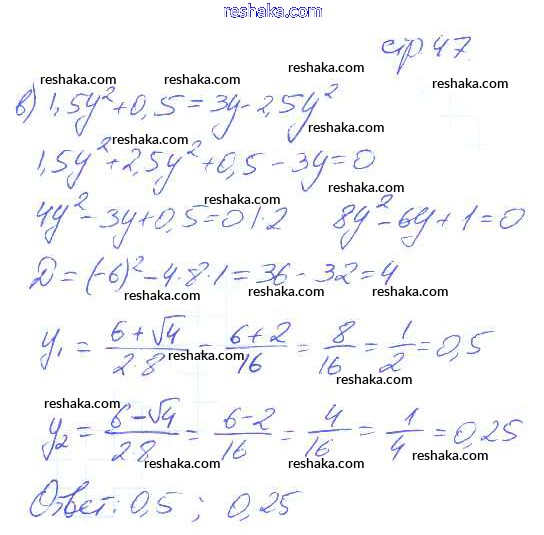 reshaka.com
стр 47.
reshaka.com
reshaka.com reshaka.com reshaka.com
в) 1,5y²+0,5=3y-2,5y²
reshaka.com reshaka.com
1,5y²+2,5y²+0,5-3y=0
reshaka.com reshaka.com
4y²-3y+0,5=0 |·2 8y²-6y+1=0
reshaka.com
D=(-6)²-4·8·1=36-32=4
reshaka.com reshaka.com reshaka.com
y₁ = (6+√4)/(2·8) = (6+2)/16 = 8/16 = 1/2 = 0,5
reshaka.com reshaka.com
reshaka.com reshaka.com
y₂ = (6-√4)/(2·8) = (6-2)/16 = 4/16 = 1/4 = 0,25
reshaka.com reshaka.com reshaka.com
Ответ: 0,5 ; 0,25
reshaka.com